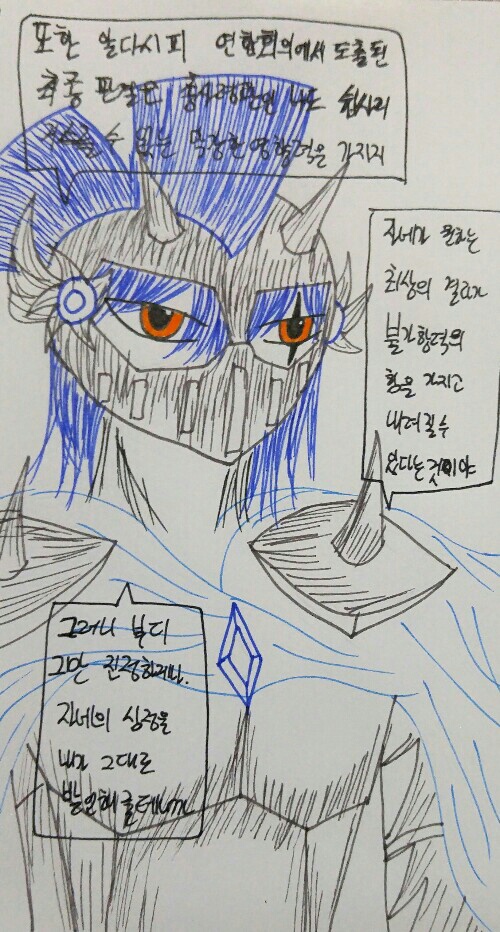 또한 알다시피 연합회의에서 도출된
최종 판결은 총사령관인 나도 쉽사리
거스를 수 없는 막강한 영향력을 가지지
자네가 원하는
최상의 결과가
불가항력의
힘을 가지고
내려질 수
있다는 것이야
그러니 부디
그만 진정하게나.
자네의 심정을
내가 그대로
발언해 줄테니까